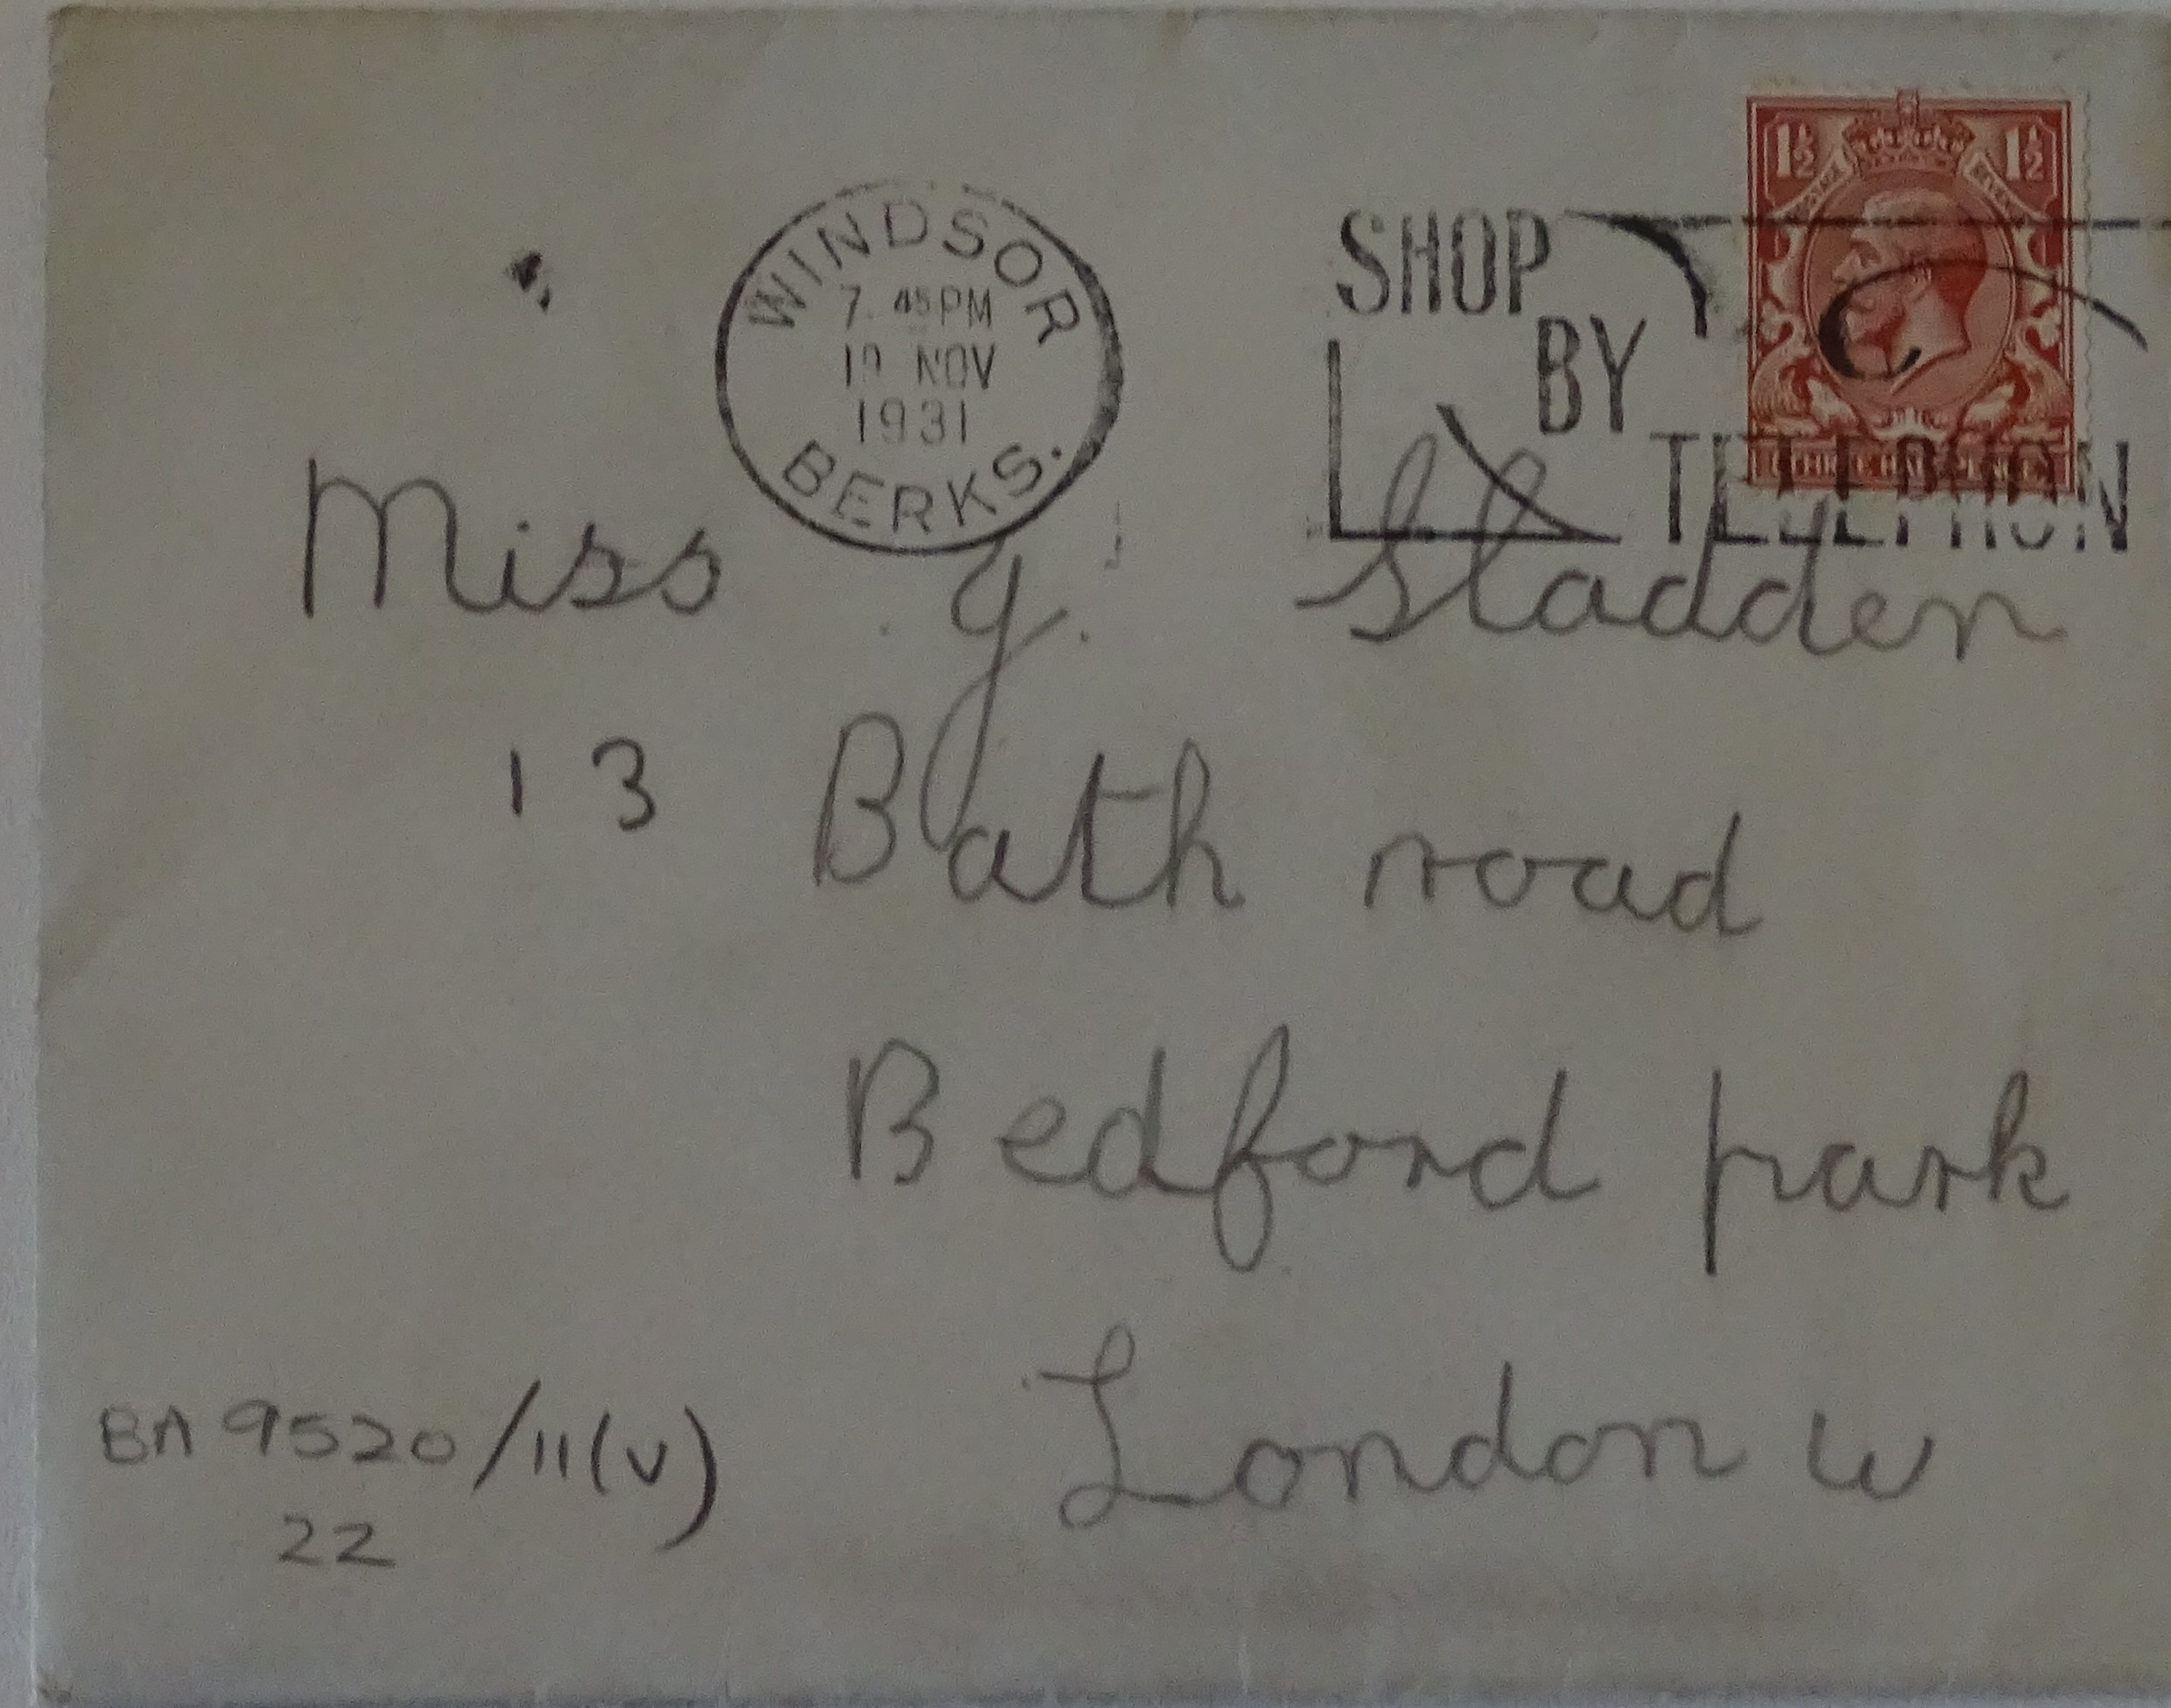 WINDSOR
7. 45 PM
NOV
1931
BERKS.
SHOP
BY
TELEPHON
1½ 1½
Miss J. Sladden
13 Bath road
Bedford park
London W
BA 9520/11(v)
22